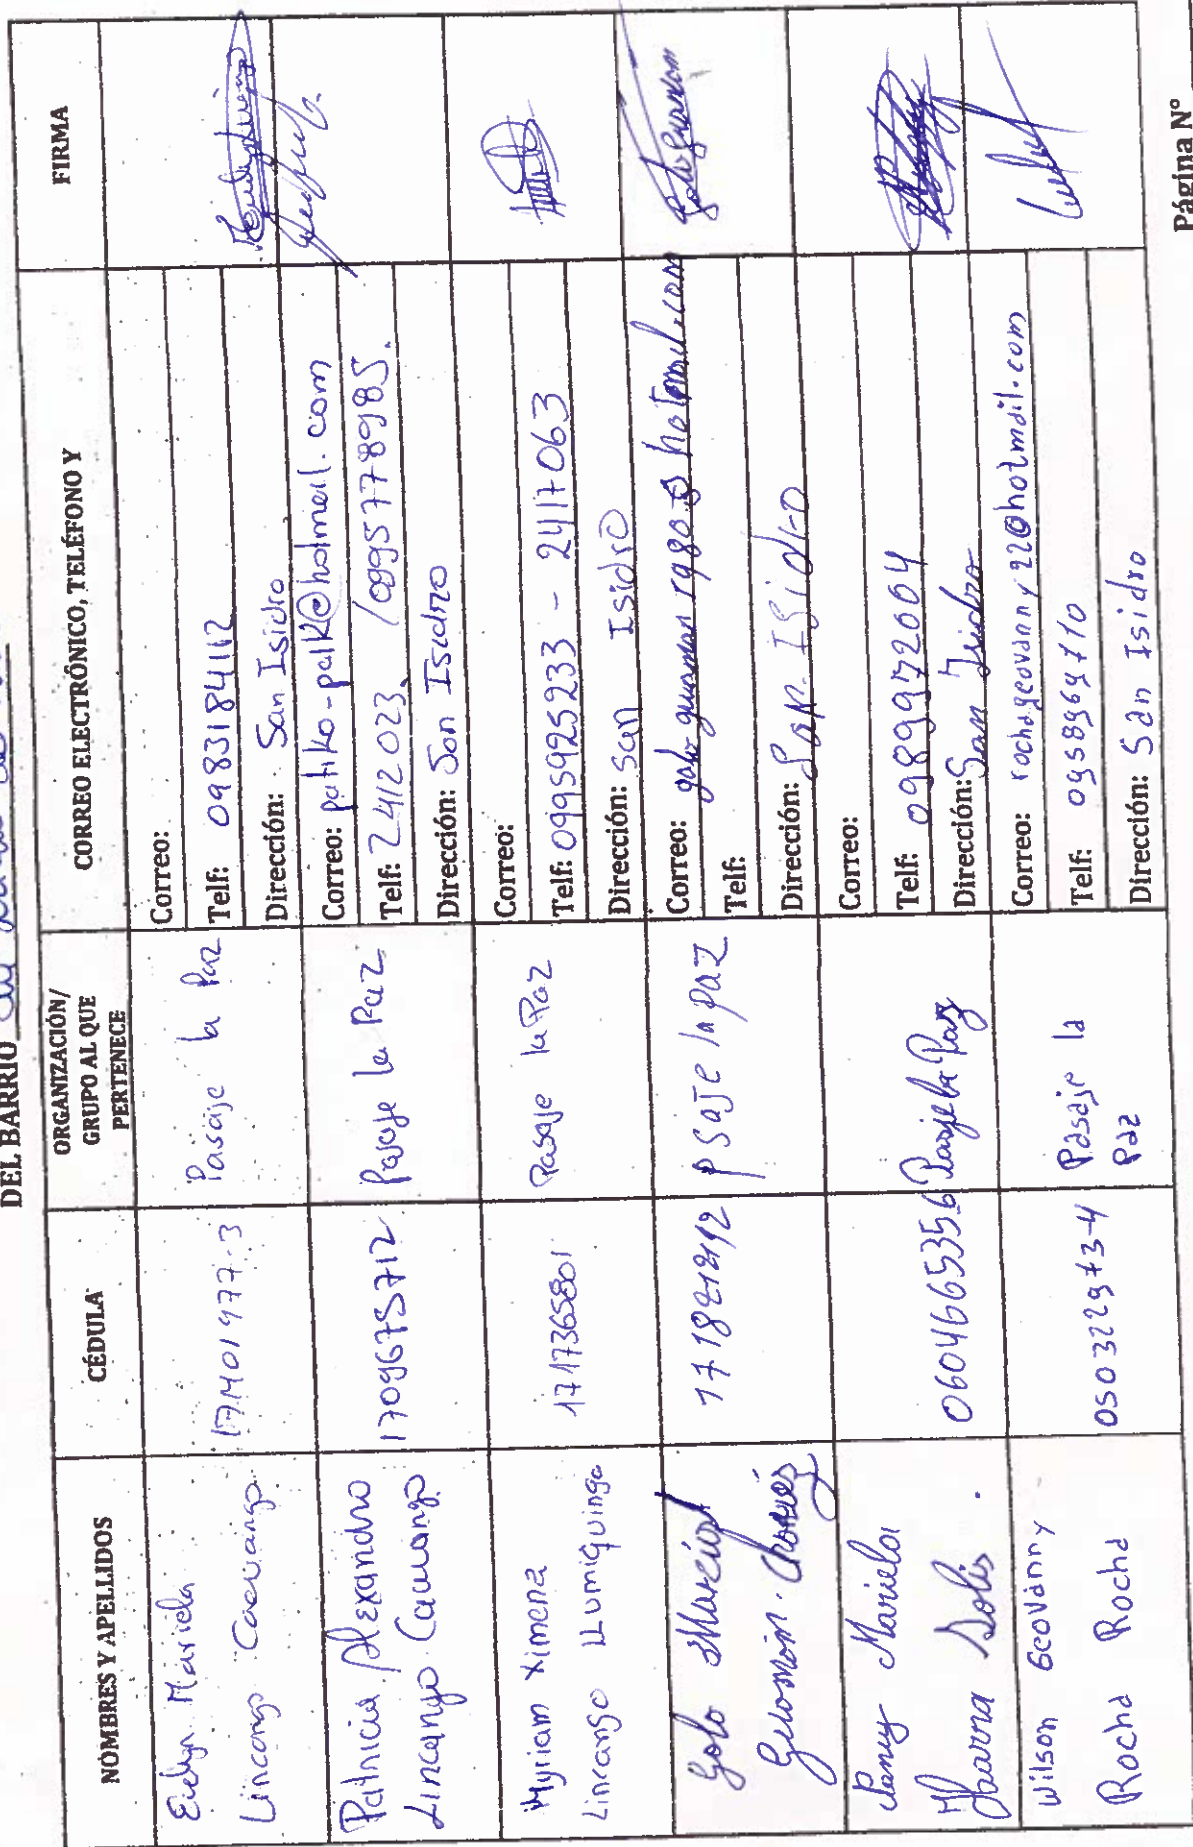 DEL BARRIO
NOMBRES Y APELLIDOS
CÉDULA
ORGANIZACIÓN/
GRUPO AL QUE
PERTENECE
CORREO ELECTRÓNICO, TELÉFONO Y
FIRMA
Evelyn Mariela
Lincango Cacuango
171401977-3
Pasaje la Paz
Correo:
Telf: 0983184112
Dirección: San Isidro
Patricia Alexandra
Lincango Cacuango
1709675712
Pasaje la Paz
Correo: patiko-palk@hotmail.com
Telf: 2412023 / 0995778985.
Dirección: San Isidro
Myriam Ximena
Lincango LLumiquinga
1717365801
Pasaje la Paz
Correo:
Telf: 0995925233 - 2417063
Dirección: San Isidro
Galo Marcial
Guzman
Psaje la paz
Correo: hotmail.com
Telf:
Dirección: San Isidro
Mariela
Ibarra Solis
0604665356
Pasaje la Paz
Correo:
Telf: 0989972004
Dirección: San Isidro
Wilson Geovanny
Rocha Rocha
050322973-4
Pasaje la
Paz
Correo: rochageovanny22@hotmail.com
Telf: 0958969710
Dirección: San Isidro
Página N°